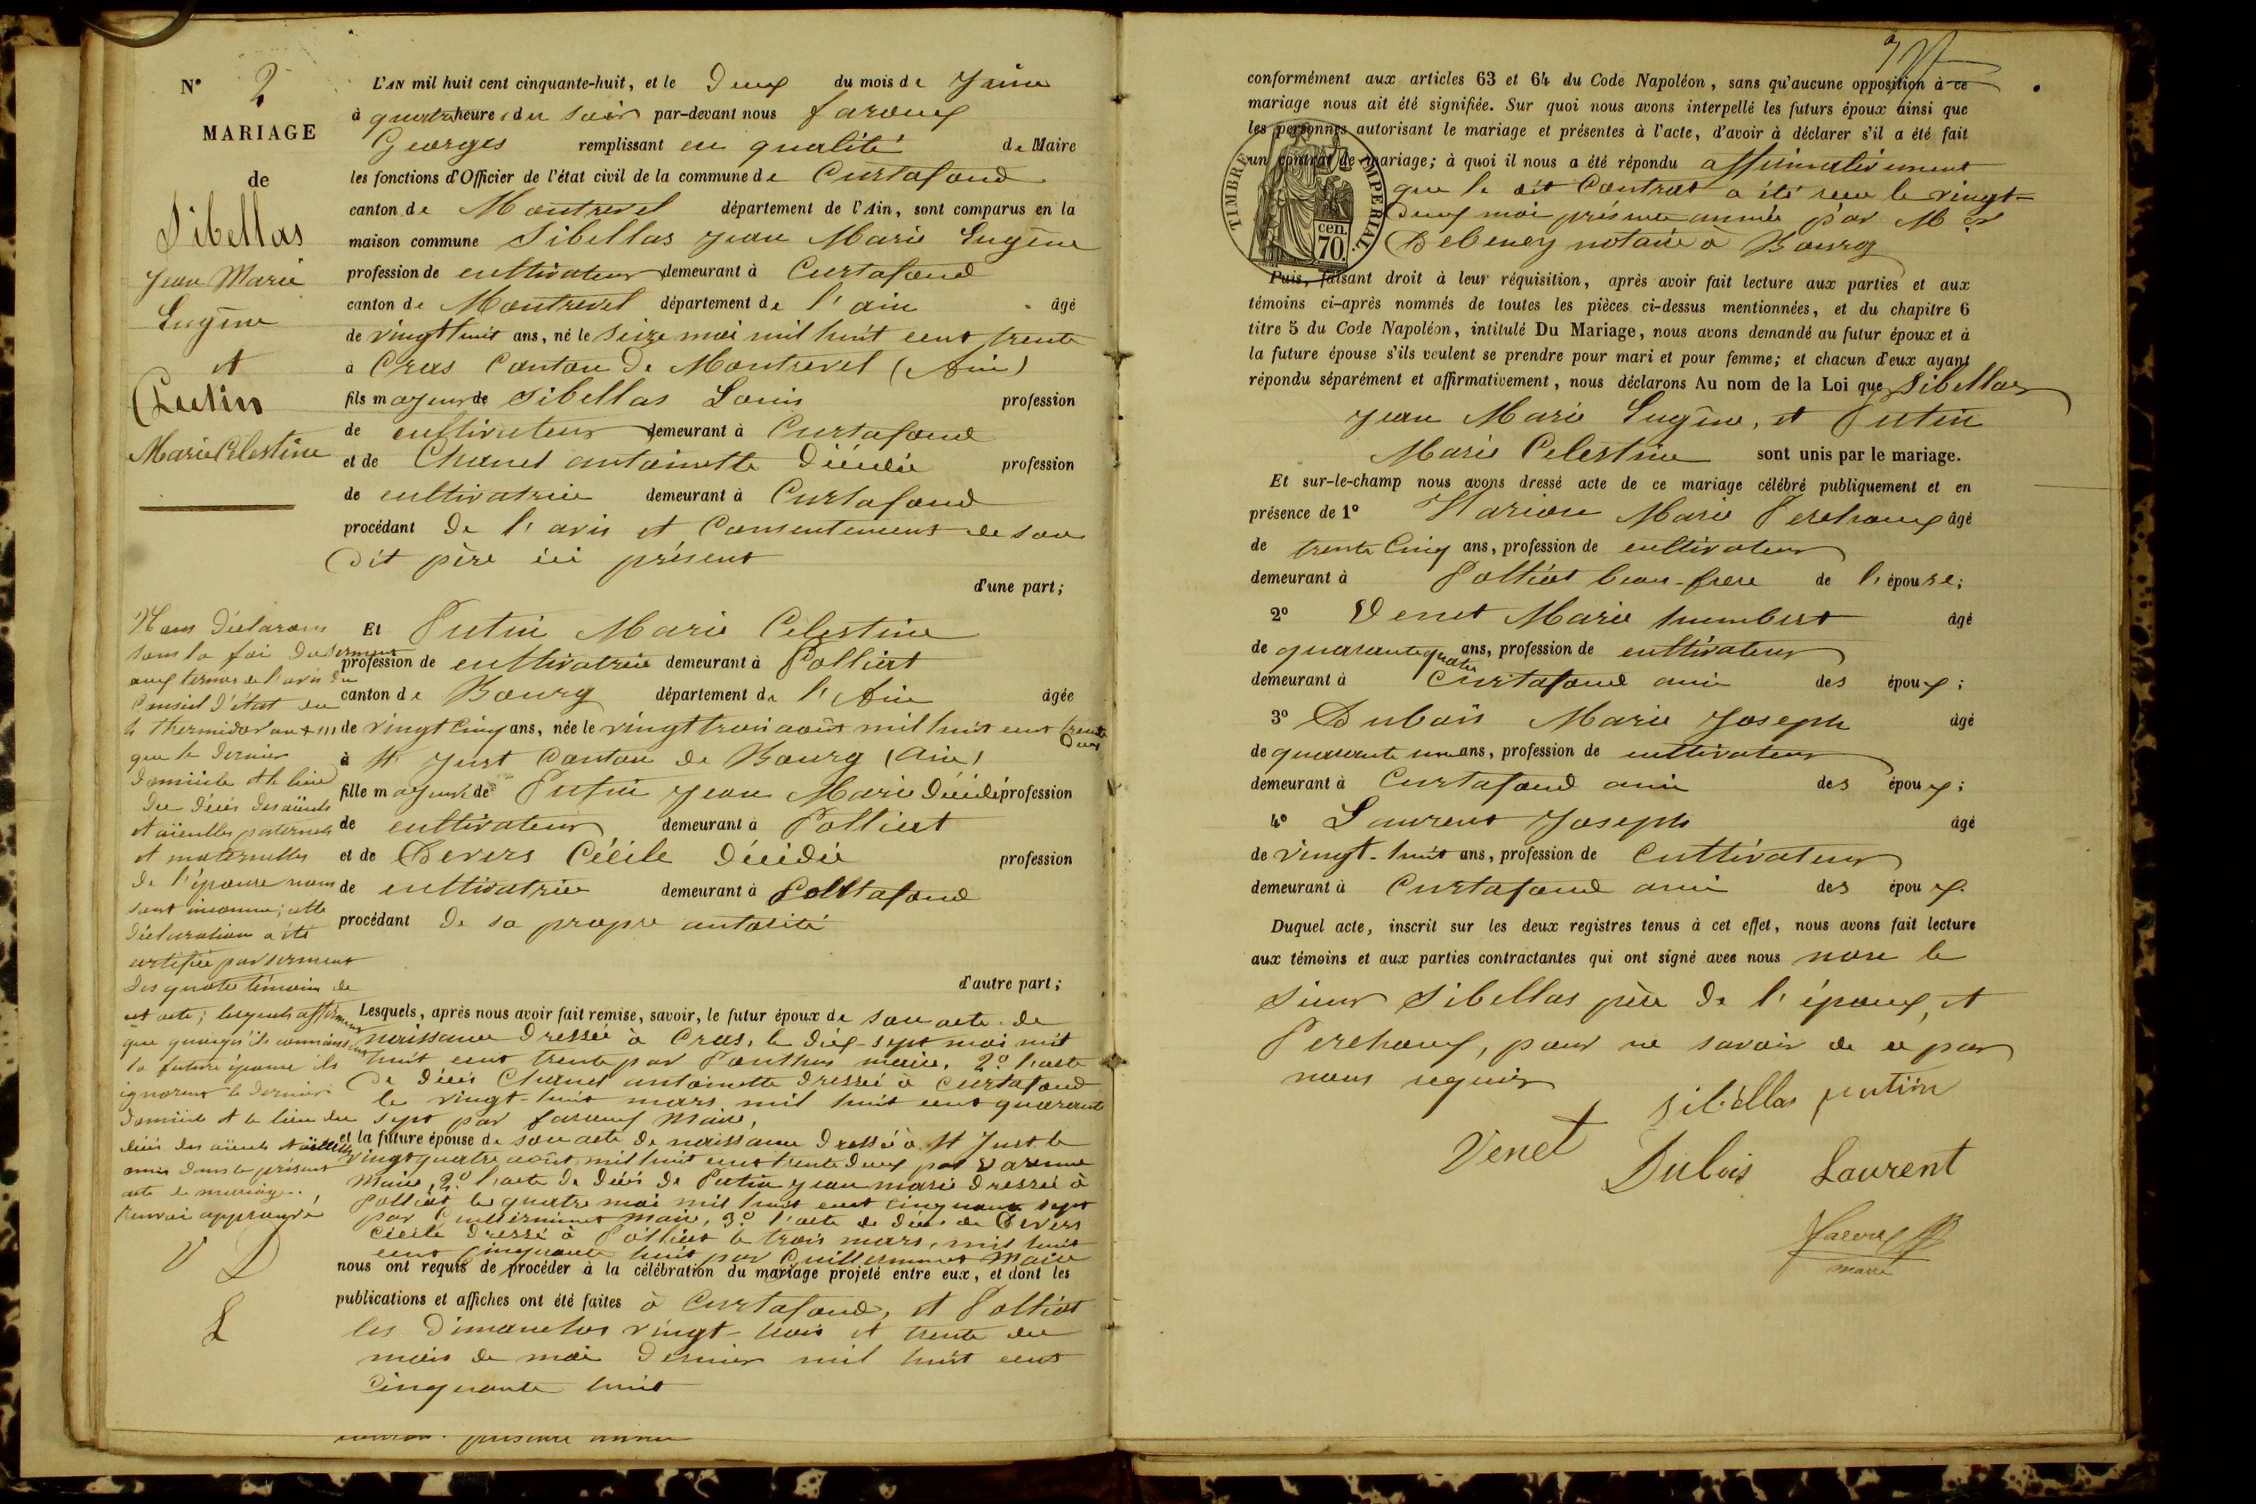 N° 2
MARIAGE
de
Sibellas
Jean Marie
Eugène
et
Putin
Marie Celestine
L'AN mil huit cent cinquante-huit, et le Deux du mois de Juin
à quatre heure du soir par-devant nous Faroux
Georges remplissant en qualité de Maire
les fonctions d'Officier de l'état civil de la commune de Curtafond
canton de Montrevel département de l'Ain, sont comparus en la
maison commune Sibellas Jean Marie Eugène
profession de cultivateur demeurant à Curtafond
canton de Montrevel département de l'ain âgé
de vingt huit ans, né le Seize mai mil huit cent trente
à Cras Canton De Montrevel (Ain)
fils majeur de Sibellas Louis profession
de cultivateur demeurant à Curtafond
et de Chanel antoinette Décédée profession
de cultivatrice demeurant à Curtafond
procédant De l'avis et Consentement de son
Dit père ici présent
d'une part;
Et Putin Marie Celestine
profession de cultivatrice demeurant à Polliat
canton de Bourg département de l'Ain âgée
de vingt Cinq ans, née le vingt trois août mil huit cent trente
Deux
à St Just Canton de Bourg (Ain)
fille majeure de Putin Jean Marie Décédé profession
de cultivateur demeurant à Polliat
et de Devers Cécile Décédée profession
de cultivatrice demeurant à
procédant De sa propre autorité
d'autre part;
Nous Déclarons
sous la foi Du serment
aux termes de l'avis du
Conseil D'état du
4 thermidor an XIII
que le Dernier
Domicile et le lieu
Du Décès Des aïeuls
et aïeulles paternels
et maternelles
De l'épouse nous
sont inconnu; cette
Déclaration a été
certifiée par serment
Des quatre témoin de
cet acte; lesquels affirment
que quoiqu'ils connaissent
la future épouse ils
ignorent le Dernier
Domicile et le lieu du
Décès des aïeuls et aïeulles
omis Dans le présent
acte de mariage.
renvoi approuvé
V D
L
Lesquels, après nous avoir fait remise, savoir, le futur époux de son acte de
naissance Dressée à Cras, le Dix-sept mai mil
huit cent trente par Panthus maire, 2° l'acte
De Décès Chanel antoinette Dressée à Curtafond
le vingt-huit mars mil huit cent quarante
sept par faroux Maire,
et la future épouse de son acte de naissance Dressé à St Just le
vingt quatre août mil huit cent trente Deux par Varenne
Maire, 2° l'acte De Décès De Putin Jean marie Dressée à
Polliat le quatre mai mil huit cent cinquante sept
par Guillerminet Maire, 3° l'acte de Décès de Devers
Cécile Dressé à Polliat le trois mars, mil huit
cent Cinquante huit par Guillerminet Maire
nous ont requis de procéder à la célébration du mariage projeté entre eux, et dont les
publications et affiches ont été faites à Curtafond, et Polliat
les Dimanches vingt-trois et trente du
mois de mai Dernier mil huit cent
Cinquante huit
conformément aux articles 63 et 64 du Code Napoléon, sans qu'aucune opposition à ce
mariage nous ait été signifiée. Sur quoi nous avons interpellé les futurs époux ainsi que
les personnes autorisant le mariage et présentes à l'acte, d'avoir à déclarer s'il a été fait
un contrat de mariage; à quoi il nous a été répondu affirmativement
que le dit Contrat a été reçu le vingt-
Deux mai présente année par M
Debeney notaire à Bourg
TIMBRE IMPERIAL.
cen.
70.
Puis, faisant droit à leur réquisition, après avoir fait lecture aux parties et aux
témoins ci-après nommés de toutes les pièces ci-dessus mentionnées, et du chapitre 6
titre 5 du Code Napoléon, intitulé Du Mariage, nous avons demandé au futur époux et à
la future épouse s'ils veulent se prendre pour mari et pour femme; et chacun d'eux ayant
répondu séparément et affirmativement, nous déclarons Au nom de la Loi que Sibellas
Jean Marie Eugène, et Putin
Marie Celestine sont unis par le mariage.
Et sur-le-champ nous avons dressé acte de ce mariage célébré publiquement et en
présence de 1° Marion Marie Perchoux âgé
de trente Cinq ans, profession de cultivateur
demeurant à Polliat beau-frère de l'épouse;
2° Venet Marie humbert âgé
de quarante quatre ans, profession de cultivateur
demeurant à Curtafond ami des époux;
3° Dubois Marie Joseph âgé
de quarante un ans, profession de cultivateur
demeurant à Curtafond ami des époux;
4° Laurent Joseph âgé
de vingt-huit ans, profession de Cultivateur
demeurant à Curtafond ami des époux.
Duquel acte, inscrit sur les deux registres tenus à cet effet, nous avons fait lecture
aux témoins et aux parties contractantes qui ont signé avec nous non le
sieur Sibellas père De l'époux, et
Perchoux, pour ne savoir de ce par
nous requis
Sibellas putin
Venet
Dubois Laurent
Faroux
maire